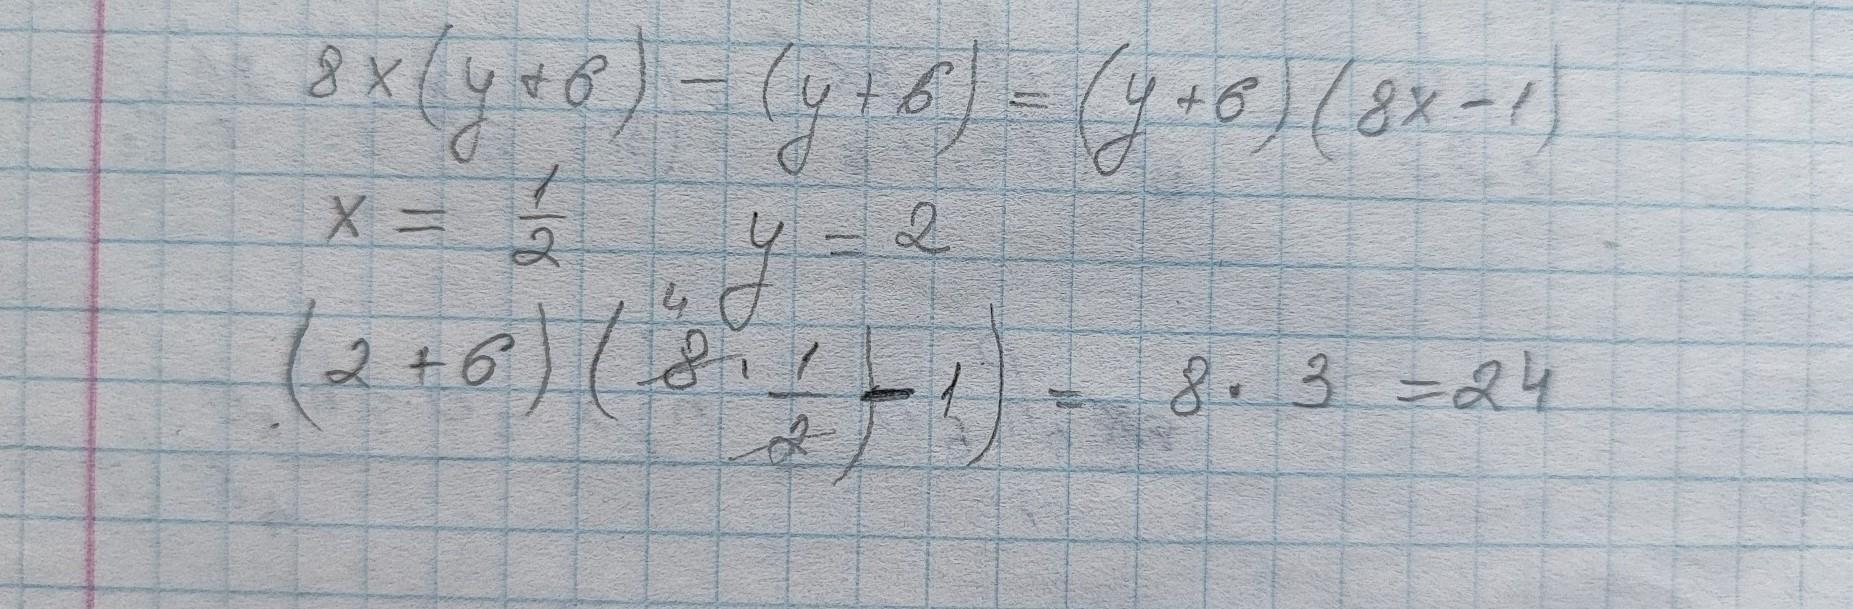 8x(y+6) - (y+6) = (y+6)(8x-1)
x = 1/2 y = 2
(2+6)(8 4 · 1/2) - 1) = 8 · 3 = 24